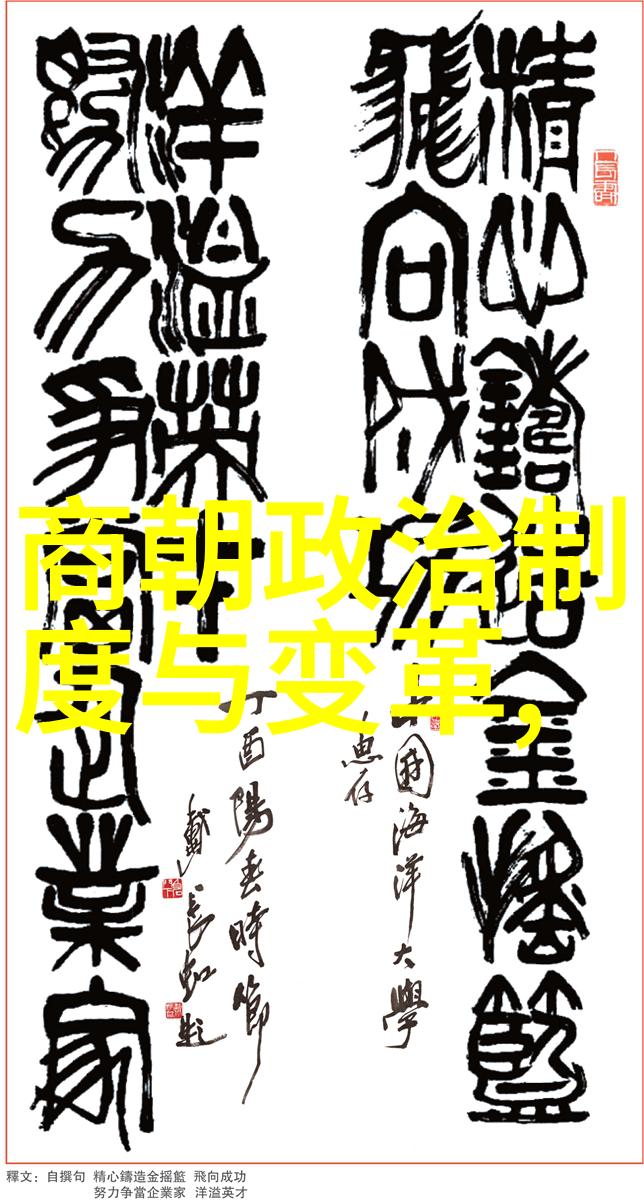 精心鑄造金搖籃
飛向成功
中國海洋大學
惠存
洋溢英才
丁酉陽春時節
努力爭當企業家
戴長虹題
商朝政治制
度与变革,
釋文：自撰句 精心鑄造金摇籃 飛向成功
努力争當企業家 洋溢英才